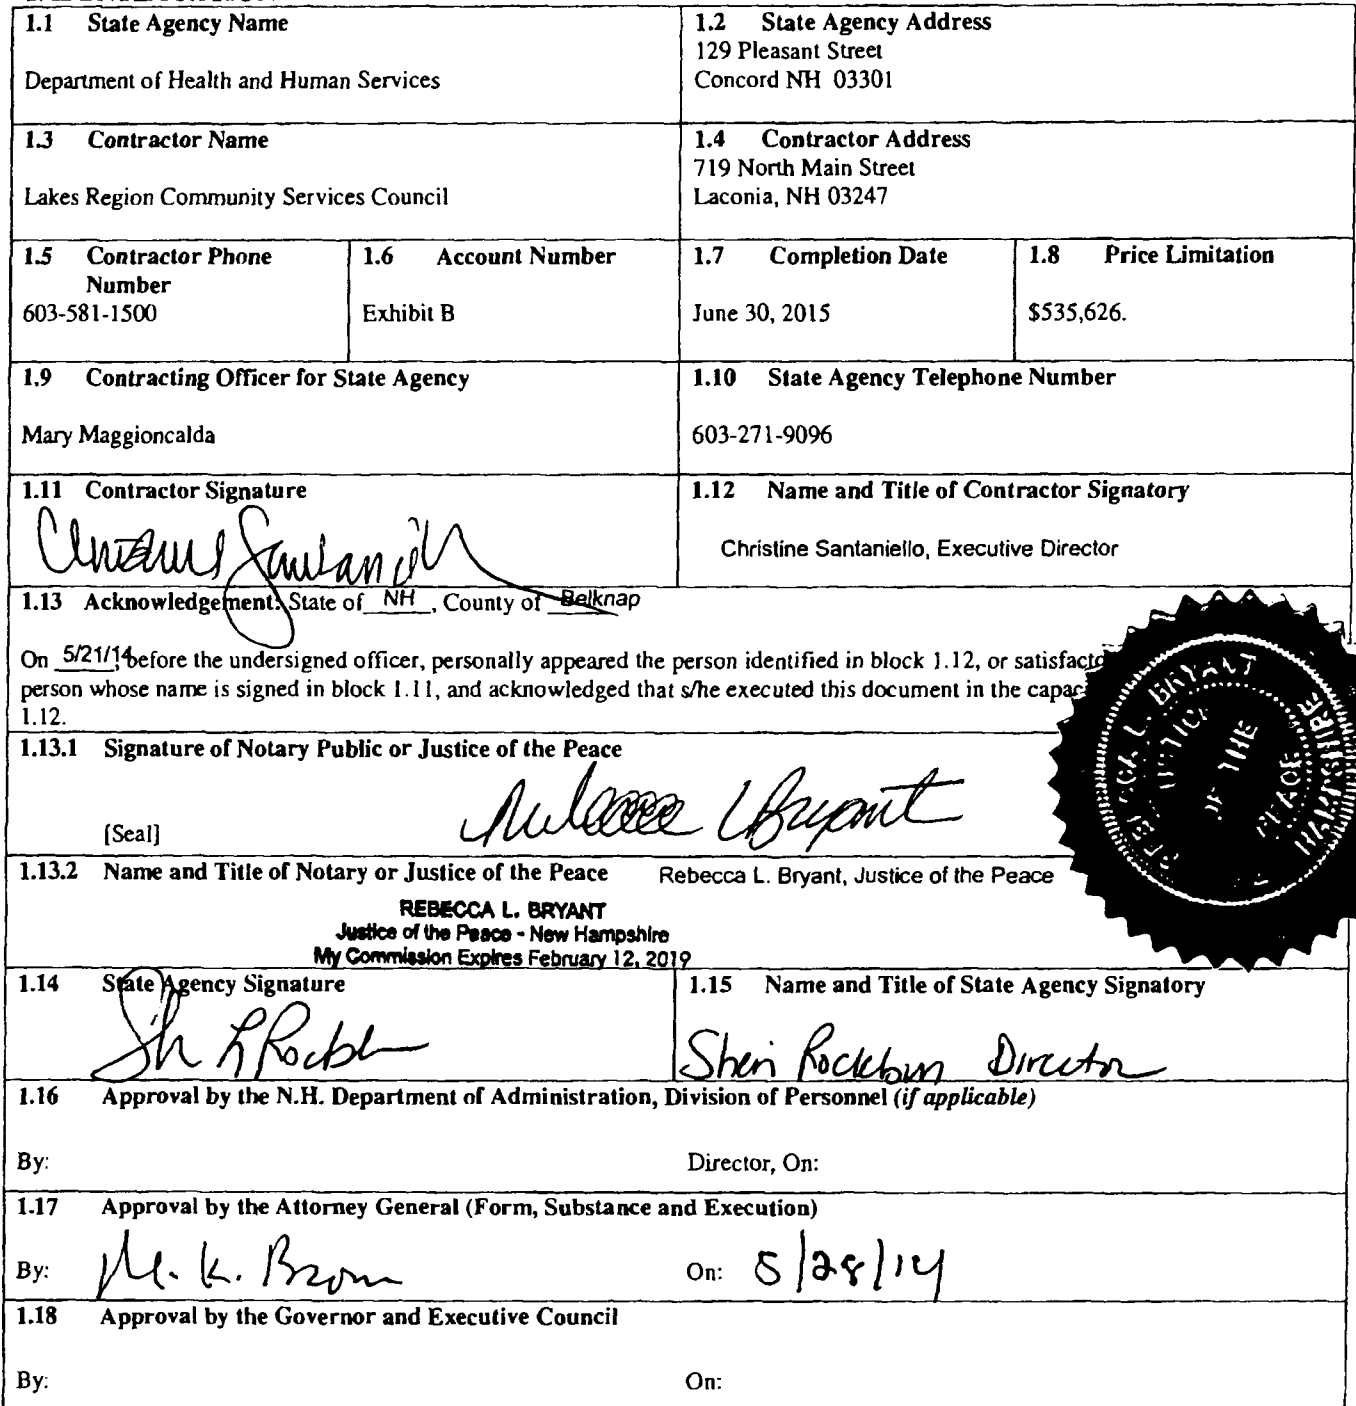 1.1 State Agency Name
Department of Health and Human Services
1.2 State Agency Address
129 Pleasant Street
Concord NH 03301
1.3 Contractor Name
Lakes Region Community Services Council
1.4 Contractor Address
719 North Main Street
Laconia, NH 03247
1.5 Contractor Phone
Number
603-581-1500
1.6 Account Number
Exhibit B
1.7 Completion Date
June 30, 2015
1.8 Price Limitation
$535,626.
1.9 Contracting Officer for State Agency
Mary Maggioncalda
1.10 State Agency Telephone Number
603-271-9096
1.11 Contractor Signature
Christine Santaniello
1.12 Name and Title of Contractor Signatory
Christine Santaniello, Executive Director
1.13 Acknowledgement: State of NH, County of Belknap
On 5/21/14, before the undersigned officer, personally appeared the person identified in block 1.12, or
person whose name is signed in block 1.11, and acknowledged that s/he executed this document in the
1.12.
1.13.1 Signature of Notary Public or Justice of the Peace
Rebecca L Bryant
[Seal]
REBECCA L. BRYANT
JUSTICE
OF THE
PEACE
HAMPSHIRE
1.13.2 Name and Title of Notary or Justice of the Peace Rebecca L. Bryant, Justice of the Peace
REBECCA L. BRYANT
Justice of the Peace - New Hampshire
My Commission Expires February 12, 2019
1.14 State Agency Signature
1.15 Name and Title of State Agency Signatory
Sheri Rockburn Director
1.16 Approval by the N.H. Department of Administration, Division of Personnel (if applicable)
By: Director, On:
1.17 Approval by the Attorney General (Form, Substance and Execution)
By: M. K. Brown On: 5/28/14
1.18 Approval by the Governor and Executive Council
By: On: